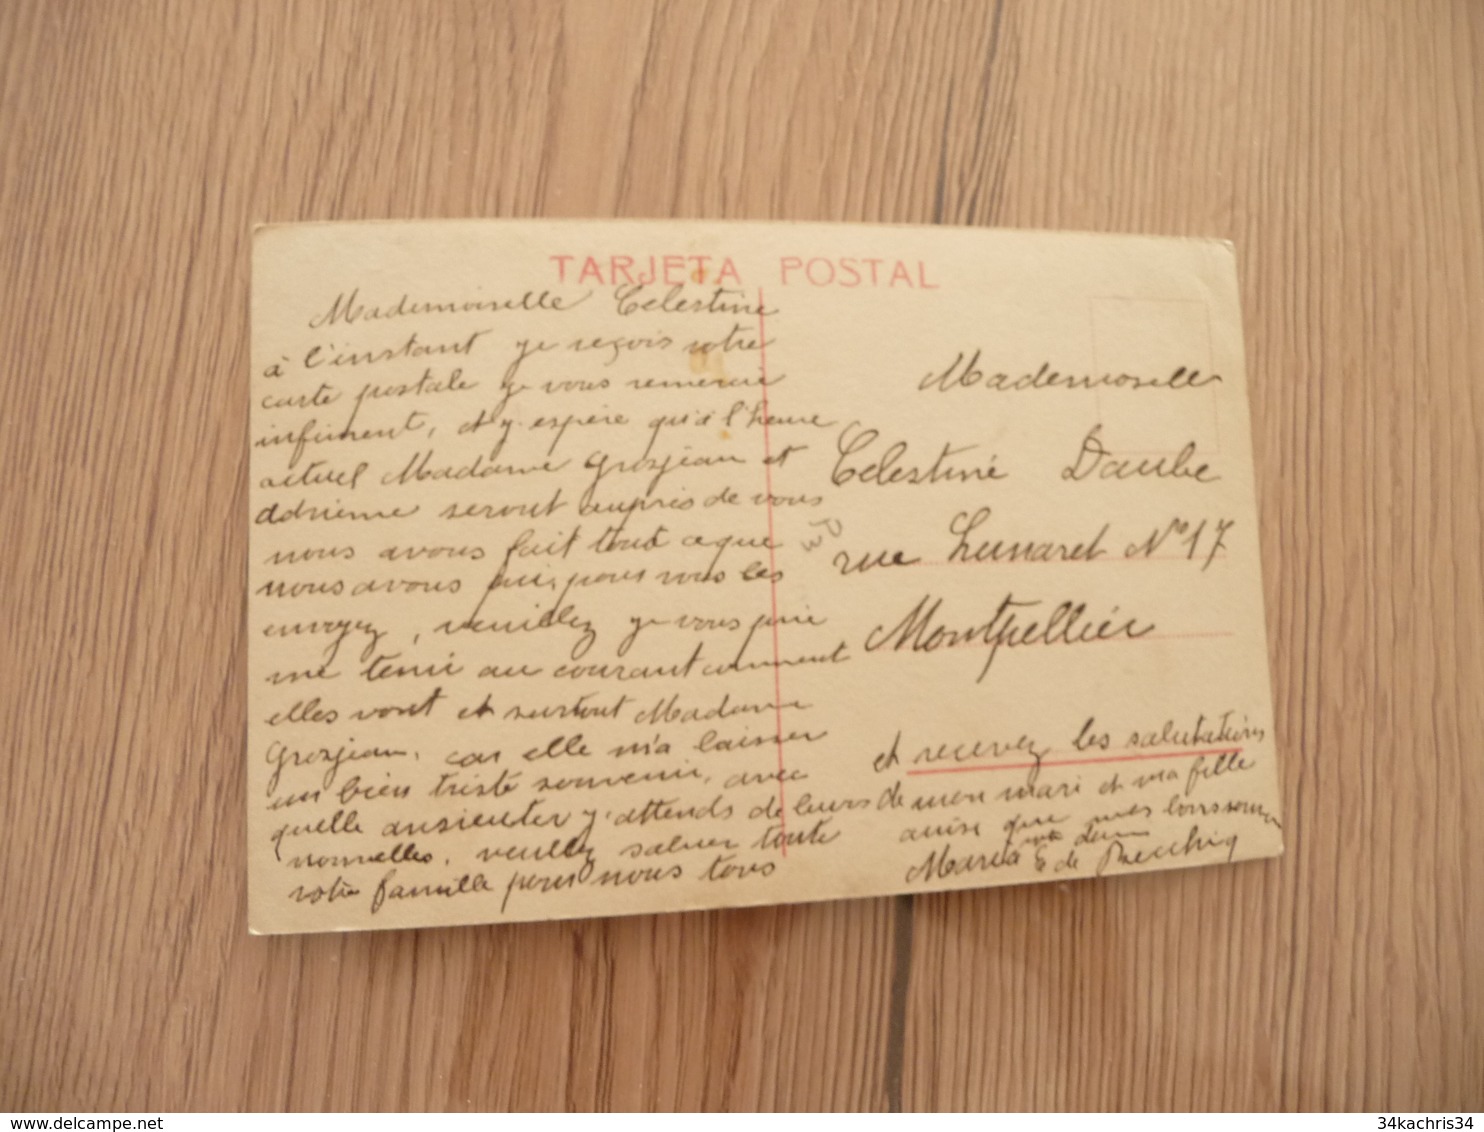 TARJETA POSTAL
Mademoiselle Celestine
à l'instant je reçois votre
carte postale je vous remercie
infiniment, et j'espère qu'à l'heure
actuel Madame Grosjean et
Adrienne seront auprès de vous
nous avons fait tout ce que
nous avons pu, pour vous les
envoyez, veuillez je vous prie
me tenir au courant comment
elles vont et surtout Madame
Grosjean, car elle m'a laisser
un bien triste souvenir, avec
quelle j'attends de leurs
nouvelles, veuillez saluer toute
votre famille pour nous tous
Mademoiselle
Celestine Daube
rue Lunaret N° 17
Montpellier
et recevez les salutations
de mon mari et ma fille
que mes bons
Maria de
34kachris34
delcampe.net